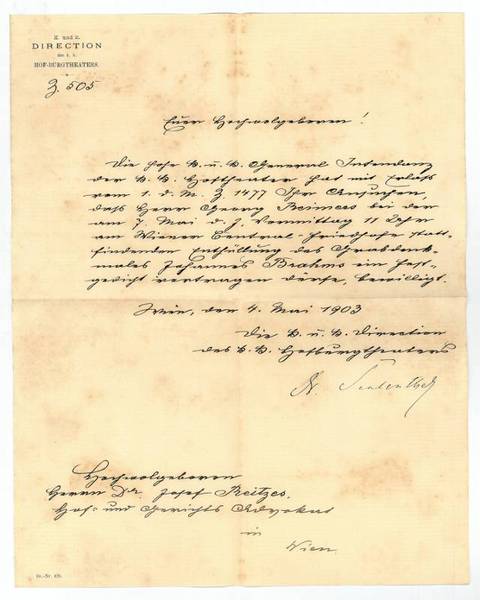 K. und K.
DIRECTION
des k. k.
HOF-BURGTHEATERS.
Z. 505
Euer Hochwolgeboren!
Die hohe k. u. k. General Intendanz
der k. k. Hoftheater hat mit Erlaß
vom 1. d. M. Z 1477 Ihr Ansuchen,
daß Herr Georg Reimers bei der
am 7 Mai d. J. Vormittag 11 Uhr
am Wiener Central-Friedhofe statt-
findenden Enthüllung des Grabdenk-
males Johannes Brahms ein Fest-
gedicht vortragen dürfe, bewilligt.
Wien, den 4. Mai 1903
Die k. u. k. Direction
des k. k. Hofburgtheaters
Hochwolgeboren
Herrn Dr. Josef Reitzes.
Hof- und Gerichts Advokat
in
Wien